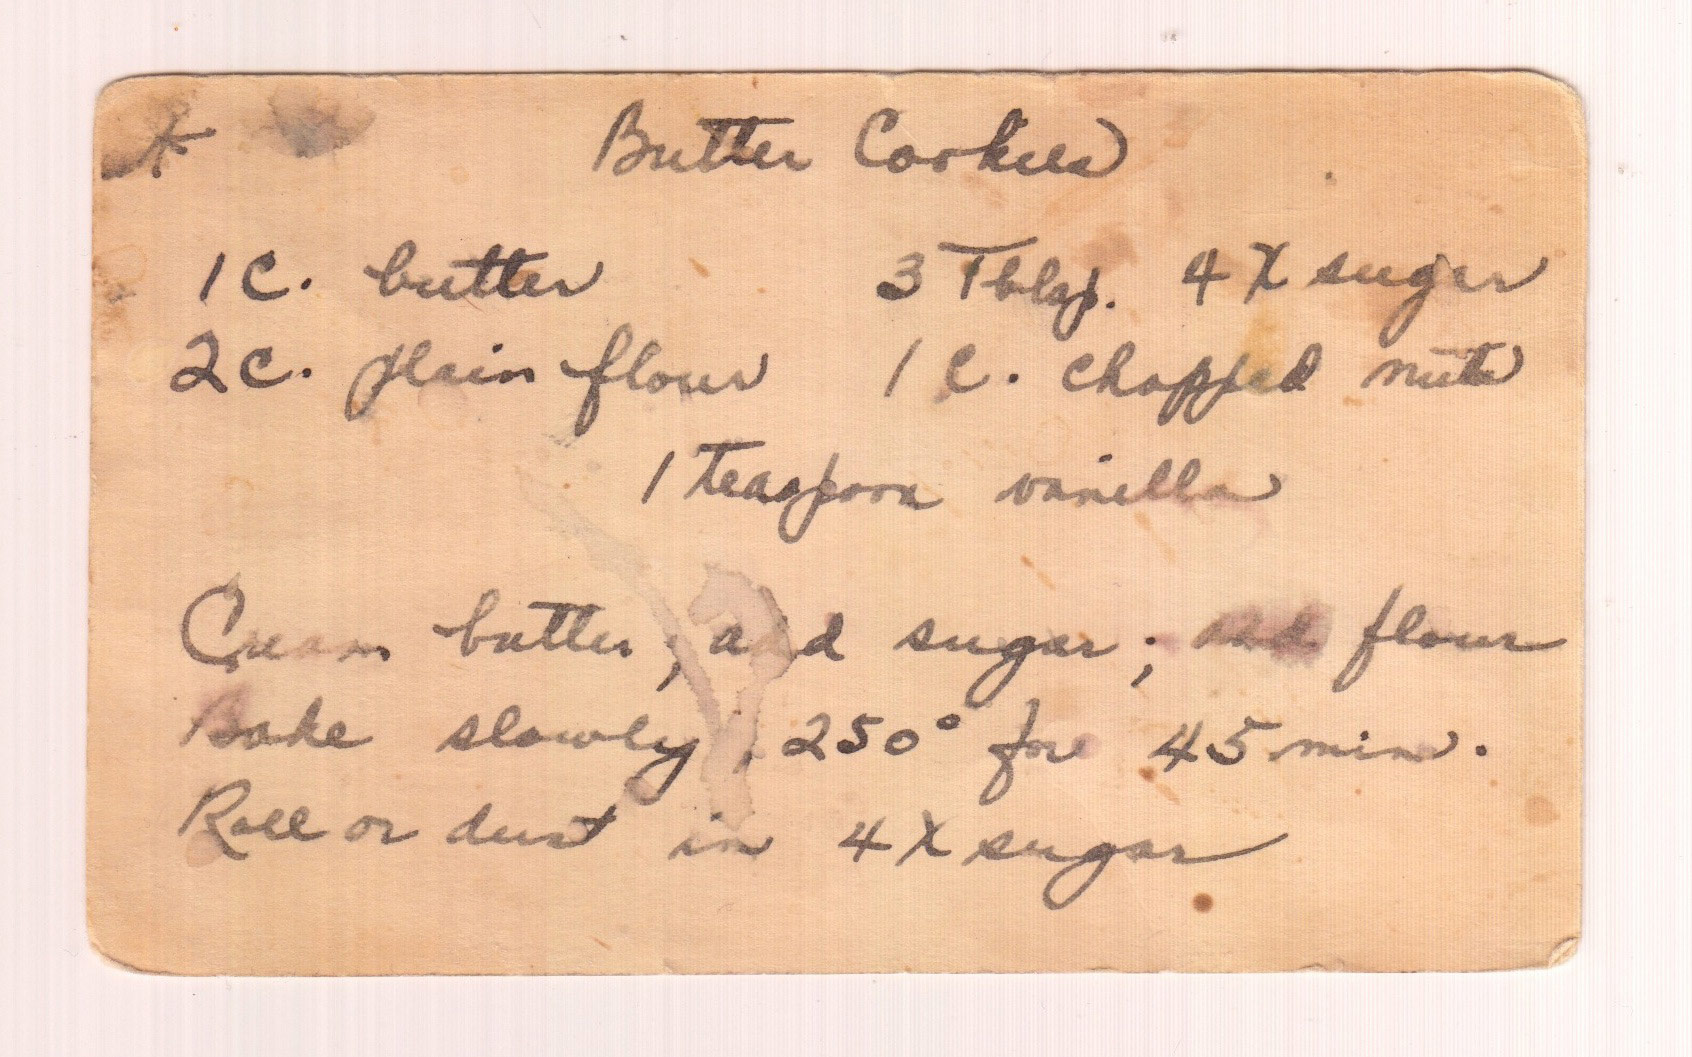 Butter Cookies
1 C. butter 3 Tblsp. 4X sugar
2 C. plain flour 1 C. chopped nuts
1 Teaspoon vanilla
Cream butter; add sugar; add flour
Bake slowly, 250° for 45 min.
Roll or dust in 4X sugar